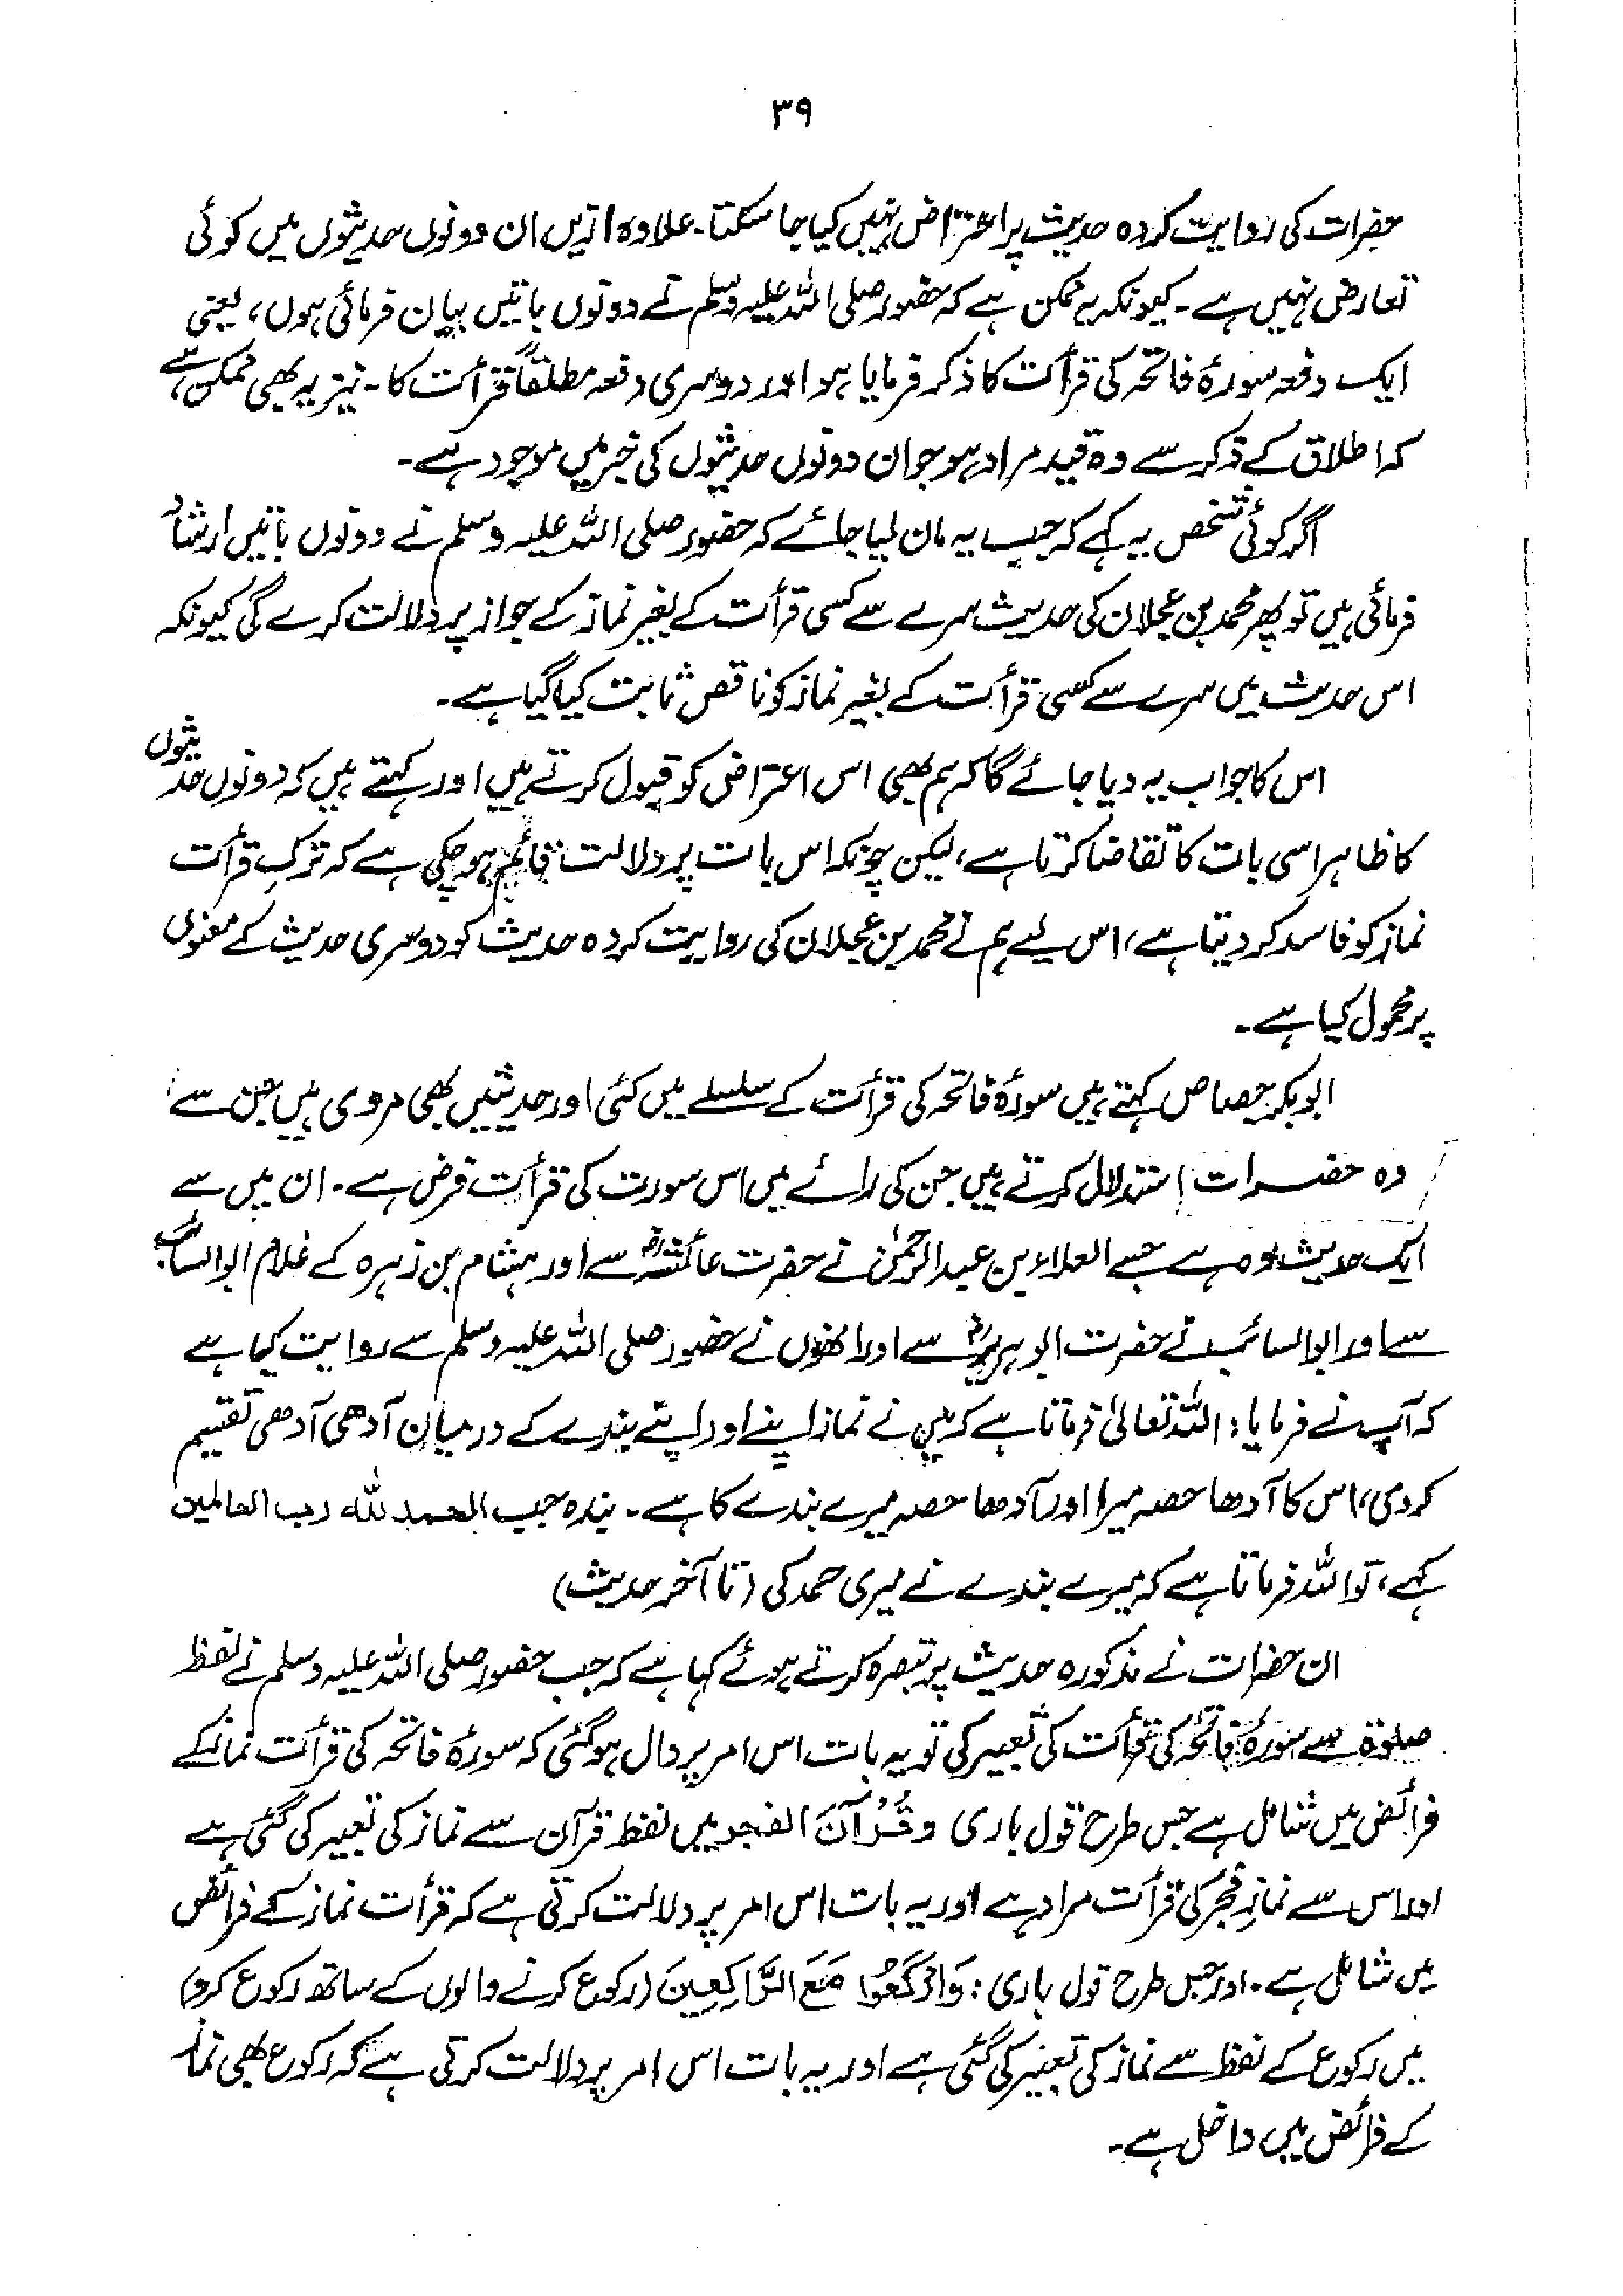 ۳۹
حضرات کی روایت کردہ حدیث پر اعتراض نہیں کیا جا سکتا۔ علاوہ ازیں ان دونوں حدیثوں میں کوئی
تعارض نہیں ہے۔ کیونکہ یہ ممکن ہے کہ حضور صلی اللہ علیہ وسلم نے دونوں باتیں بیان فرمائی ہوں، یعنی
ایک دفعہ سورۂ فاتحہ کی قرأت کا ذکر فرمایا ہو اور دوسری دفعہ مطلقاً قرأت کا۔ نیز یہ بھی ممکن ہے،
کہ اطلاق کے ذکر سے وہ قید مراد ہو جو ان دونوں حدیثوں کی خبر میں موجود ہے۔
اگر کوئی شخص یہ کہے کہ جب یہ مان لیا جائے کہ حضور صلی اللہ علیہ وسلم نے دونوں باتیں ارشاد
فرمائی ہیں تو پھر محمد بن عجلان کی حدیث سرے سے کسی قرأت کے بغیر نماز کے جواز پر دلالت کرے گی کیونکہ
اس حدیث میں سرے سے کسی قرأت کے بغیر نماز کو ناقص ثابت کیا گیا ہے۔
اس کا جواب یہ دیا جائے گا کہ ہم بھی اس اعتراض کو قبول کرتے ہیں اور کہتے ہیں کہ دونوں حدیثوں
کا ظاہر اسی بات کا تقاضا کرتا ہے، لیکن چونکہ اس بات پر دلالت قائم ہو چکی ہے کہ ترکِ قرأت
نماز کو فاسد کر دیتا ہے، اس لیے ہم نے محمد بن عجلان کی روایت کردہ حدیث کو دوسری حدیث کے معنوں
پر محمول کیا ہے۔
ابوبکر جصاص کہتے ہیں سورۂ فاتحہ کی قرأت کے سلسلے میں کئی اور حدیثیں بھی مروی ہیں جن سے
وہ حضرات استدلال کرتے ہیں جن کی رائے میں اس سورت کی قرأت فرض ہے۔ ان میں سے
ایک حدیث وہ ہے جسے العلاء بن عبدالرحمٰن نے حضرت عائشہؓ سے اور ہشام بن زہرہ کے غلام ابوالسائب
سے اور ابوالسائب نے حضرت ابوہریرہؓ سے اور انھوں نے حضور صلی اللہ علیہ وسلم سے روایت کیا ہے
کہ آپ نے فرمایا: اللہ تعالیٰ فرماتا ہے کہ میں نے نماز اپنے اور اپنے بندے کے درمیان آدھی آدھی تقسیم
کر دی، اس کا آدھا حصہ میرا اور آدھا حصہ میرے بندے کا ہے۔ بندہ جب الحمد للہ رب العالمین
کہے، تو اللہ فرماتا ہے کہ میرے بندے نے میری حمد کی (تا آخر حدیث)
ان حضرات نے مذکورہ حدیث پر تبصرہ کرتے ہوئے کہا ہے کہ جب حضور صلی اللہ علیہ وسلم نے لفظ
صلوٰۃ سے سورۂ فاتحہ کی قرأت کی تعبیر کی تو یہ بات اس امر پر دال ہو گئی کہ سورۂ فاتحہ کی قرأت نماز کے
فرائض میں شامل ہے جس طرح قول باری وَقُرْآنَ الفجر میں لفظ قرآن سے نماز کی تعبیر کی گئی ہے
اور اس سے نمازِ فجر کی قرأت مراد ہے اور یہ بات اس امر پر دلالت کرتی ہے کہ قرأت نماز کے فرائض
میں شامل ہے۔ اور جس طرح قول باری: وَارْكَعُوا مَعَ الرَّاكِعِينَ (رکوع کرنے والوں کے ساتھ رکوع کرو)
میں رکوع کے لفظ سے نماز کی تعبیر کی گئی ہے اور یہ بات اس امر پر دلالت کرتی ہے کہ رکوع بھی نماز
کے فرائض میں داخل ہے۔